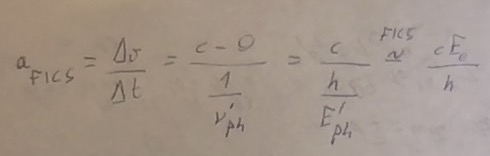 a_FICS = Δv/Δt = (c - 0)/(1/ν'_ph) = c/(h/E'_ph) FICS ≈ cE₀/h